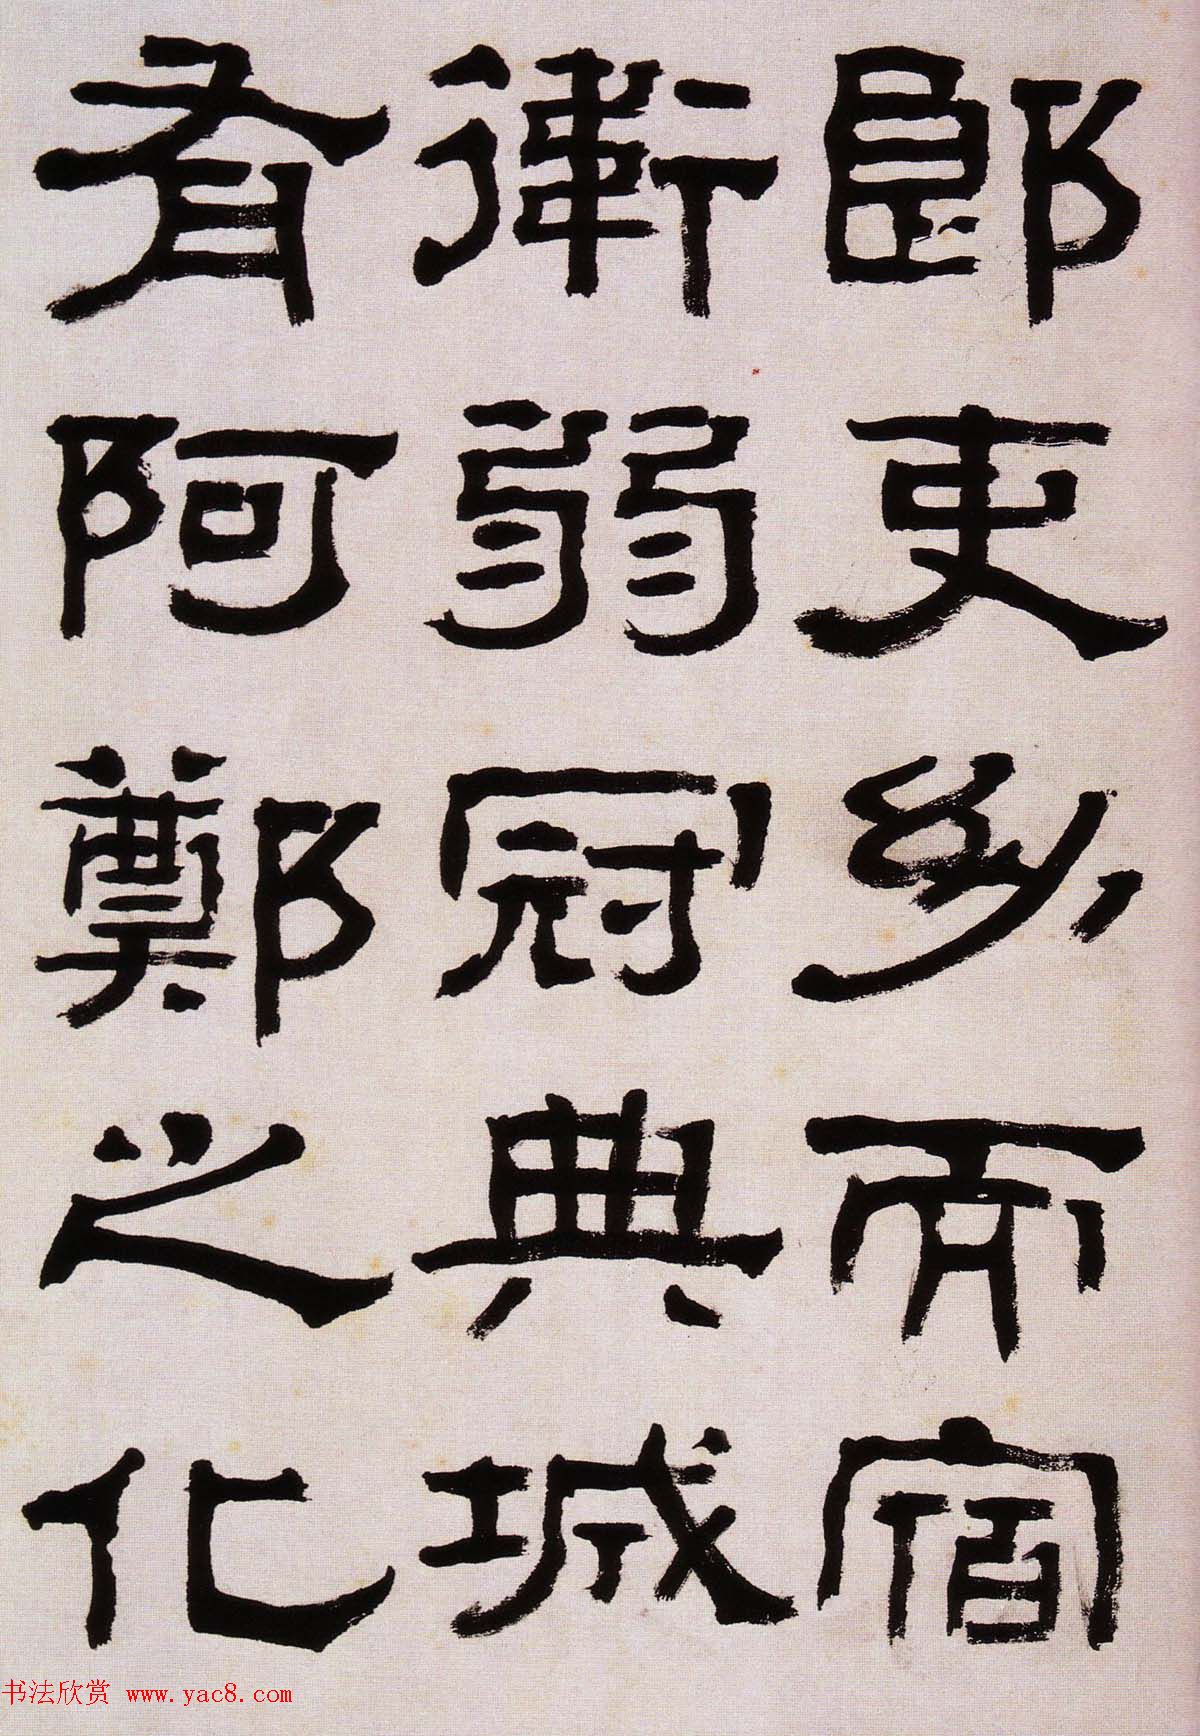 郎吏幼而宿
衛弱冠典城
有阿鄭之化
书法欣赏 www.yac8.com